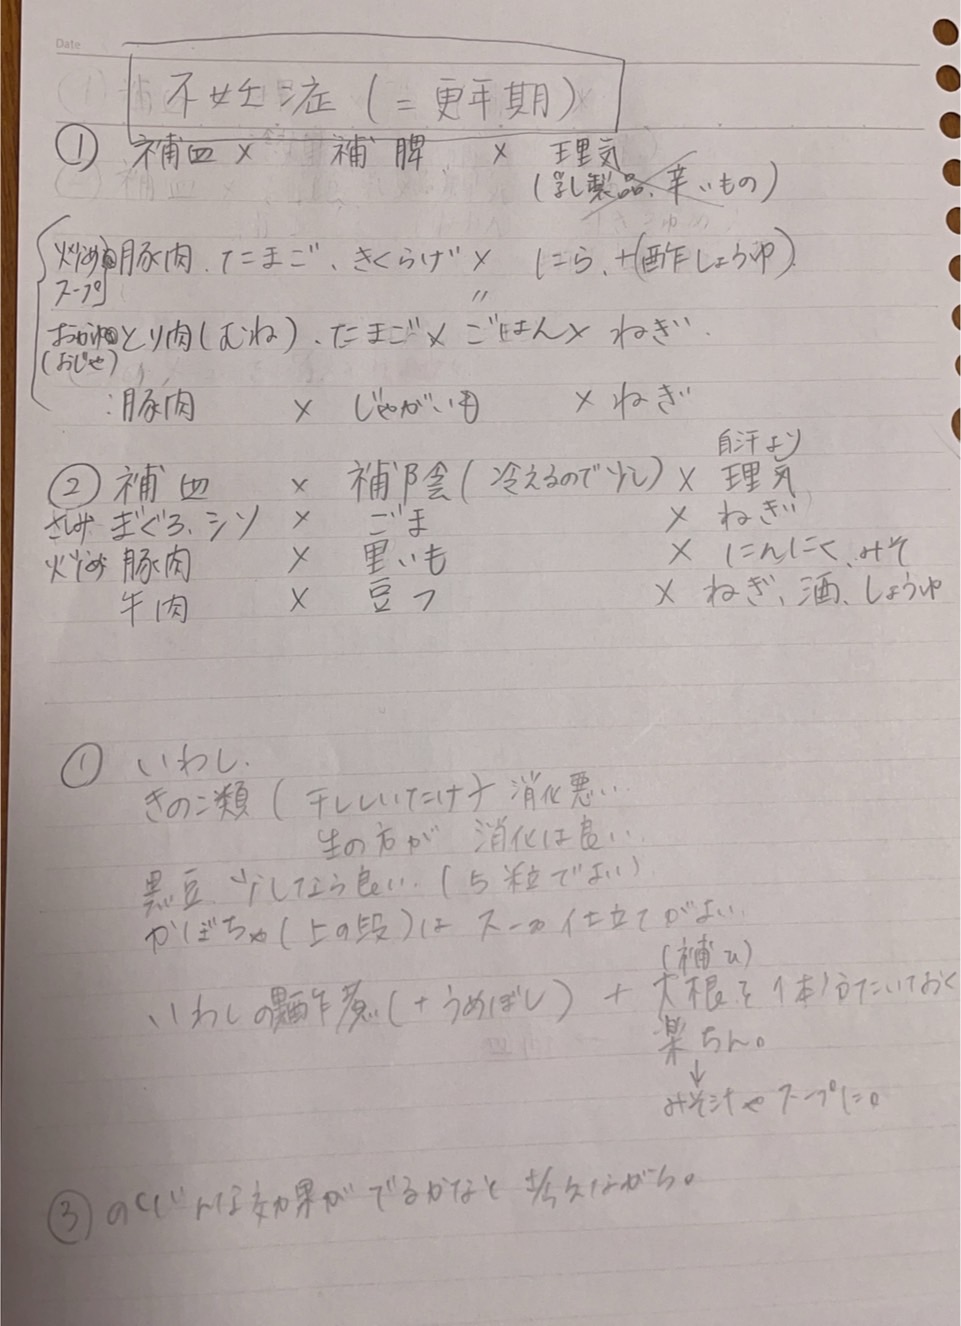 Date
不妊症(=更年期)
① 補血 × 補脾 × 理気
(乳製品、辛いもの)
炒め 豚肉、たまご、きくらげ × にら、+(酢しょうゆ)
スープ 〃
おかゆ とり肉(むね)、たまご × ごはん × ねぎ.
(おじや)
:豚肉 × じゃがいも × ねぎ
自汗より
② 補血 × 補陰(冷えるので少し) × 理気
さしみ まぐろ、シソ × ごま × ねぎ
炒め 豚肉 × 里いも × にんにく、みそ
牛肉 × 豆フ × ねぎ、酒、しょうゆ
① いわし.
きのこ類(干ししいたけ) 消化悪い.
生の方が 消化は良い.
黒豆 少しなら良い.(5粒でよい)
かぼちゃ(上の段)は スープ仕立てがよい.
(補ひ)
いわしの酢煮(+うめぼし) + 大根を1本 たいておく
楽ちん。
↓
みそ汁やスープに。
③ の 効果がでるかなと考えながら。